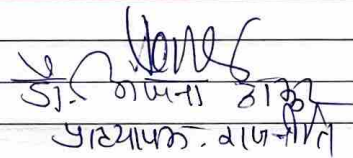 डॉ. अंजना ठाकुर
प्राध्यापक. राजनीति